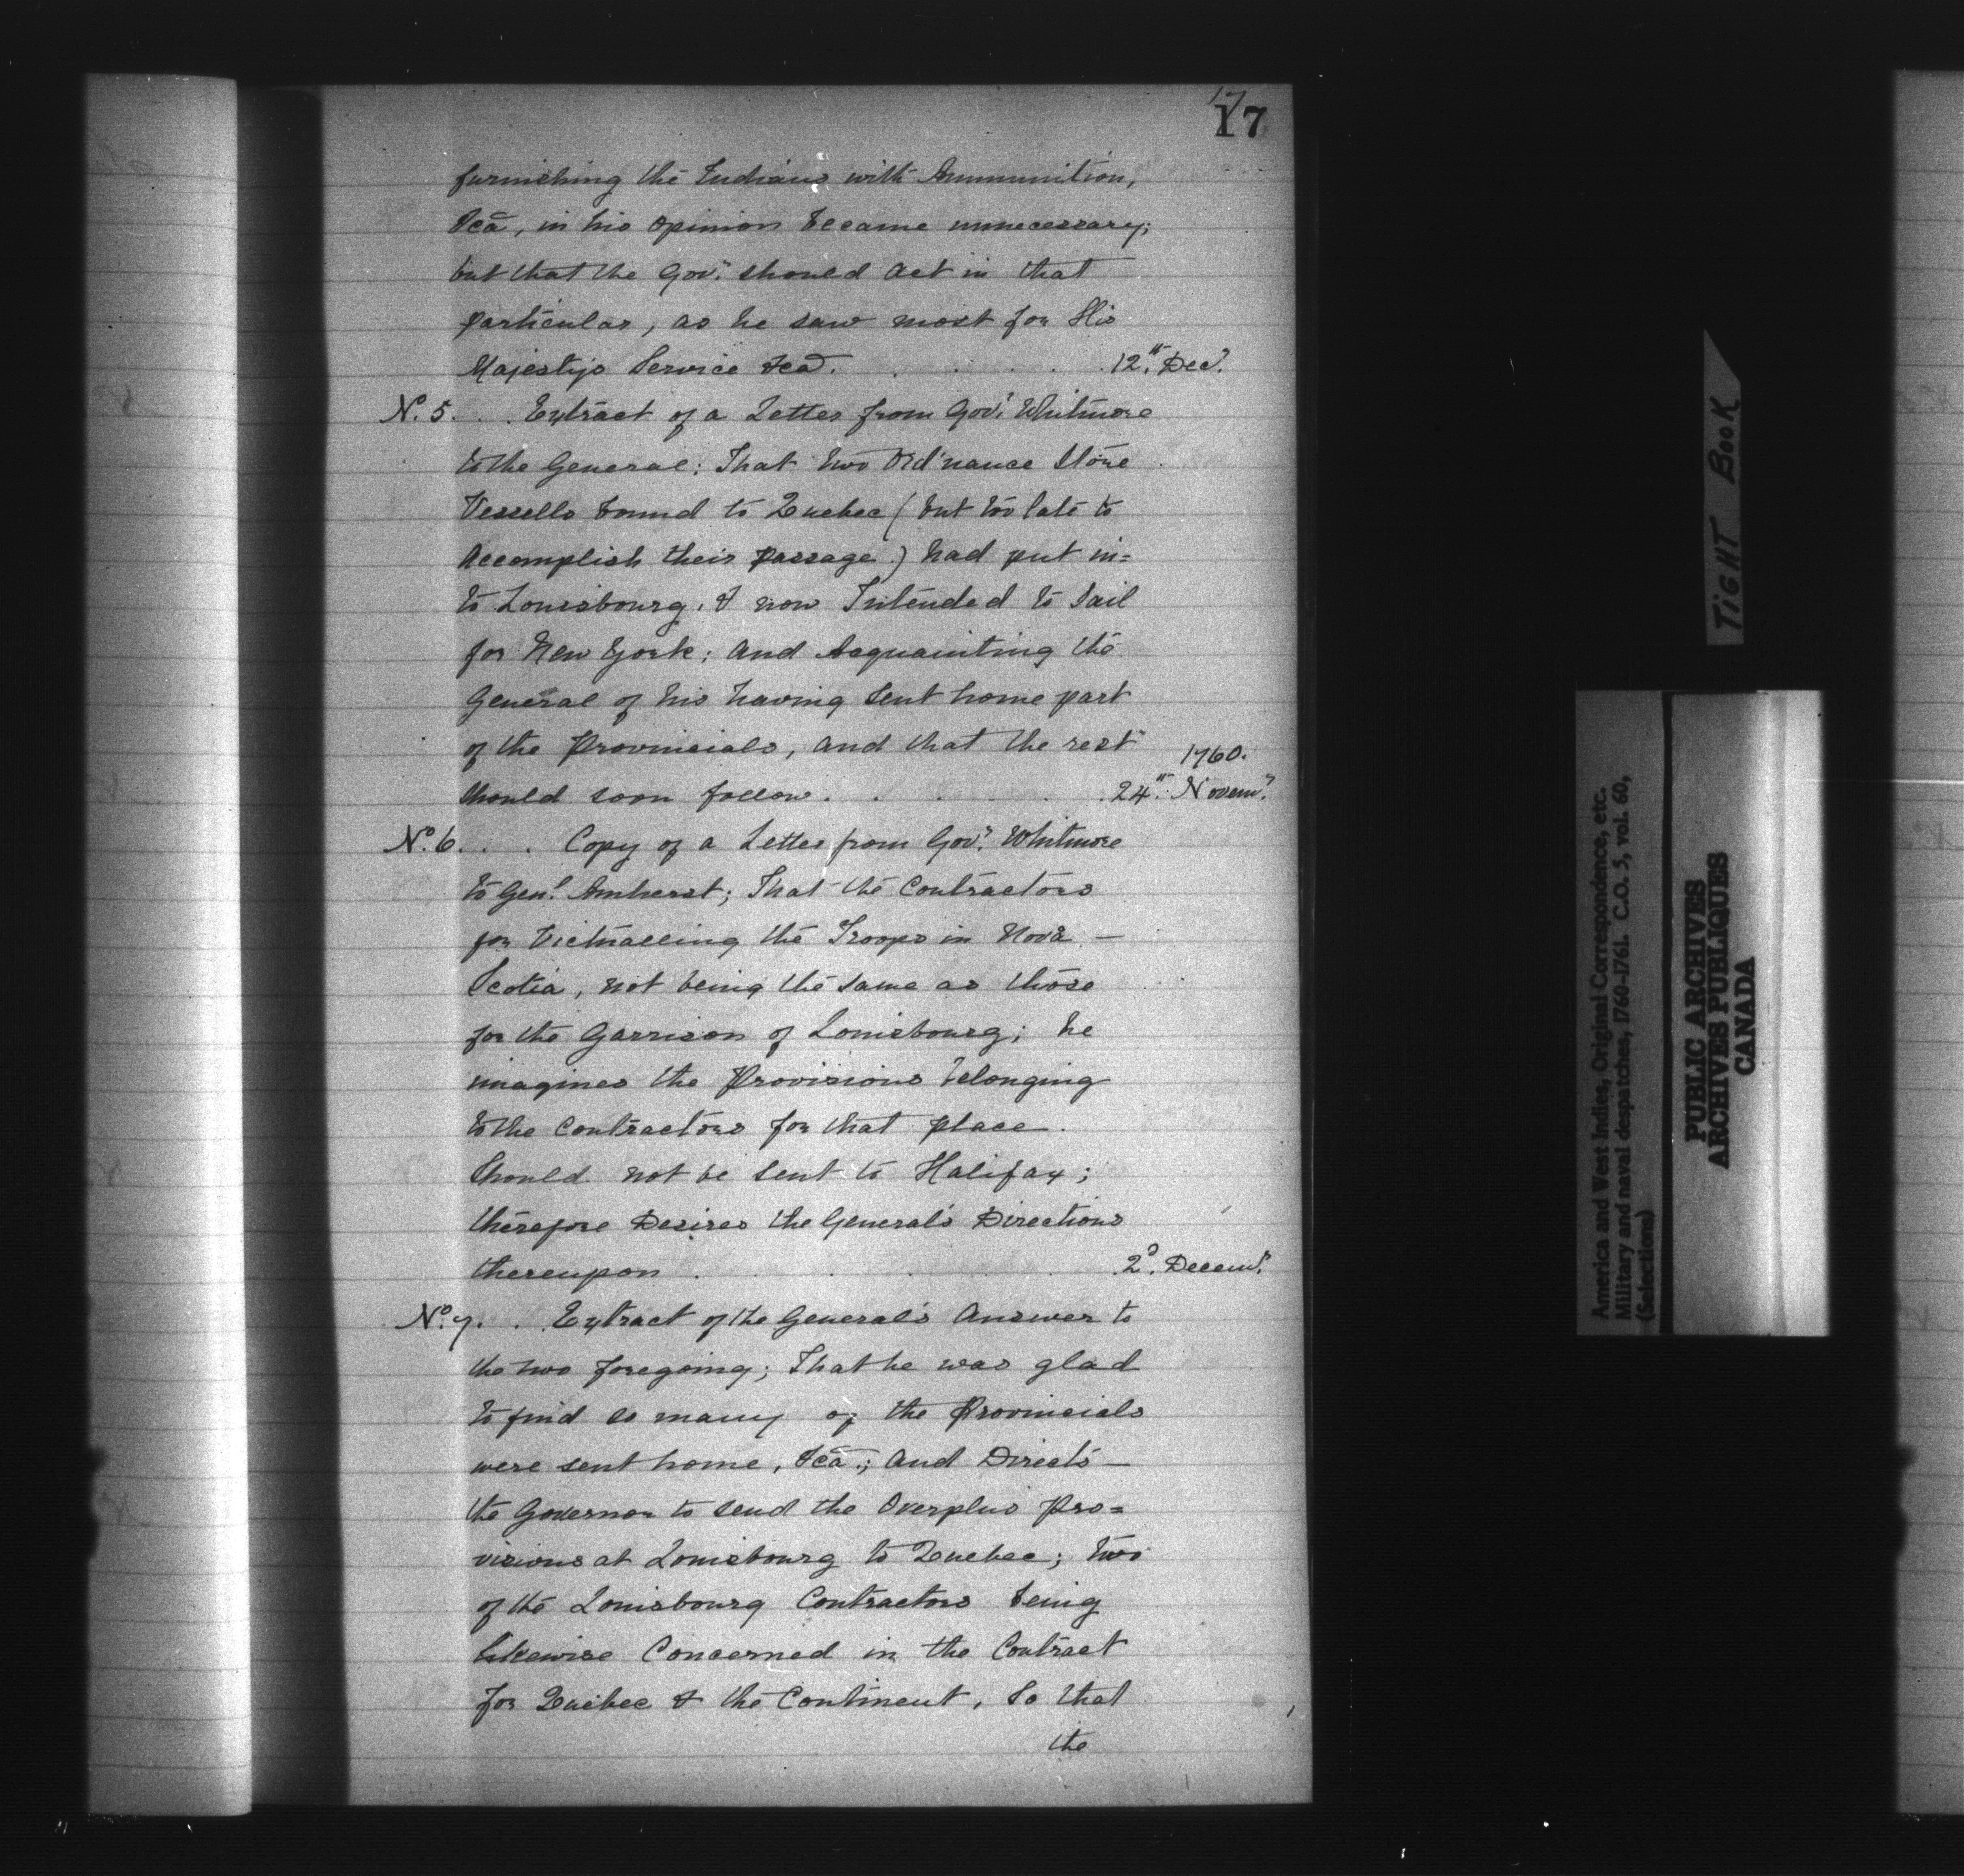 17
17
furnishing the Indians with Ammunition,
&cā, in his opinion became unnecessary;
but that the Gov.r should act in that
particular, as he saw most for His
Majestys Service &ca. . . . . . 12.th Dec.r
No. 5. . . Extract of a Letter from Gov.r Whitmore
to the General; That two Ord'nance Store
Vessells bound to Quebec (but too late to
Accomplish their passage.) had put in=
to Louisbourg, & now Intended to Sail
for New York; and Acquainting the
General of his having sent home part
of the Provincials, and that the rest
1760.
should soon follow. . . . . . 24.th Novem.r
No. 6. . . Copy of a Letter from Gov.r Whitmore
to Gen.l Amherst; That the Contractors
for Victualling the Troops in Nova —
Scotia, not being the same as those
for the Garrison of Louisbourg; he
imagines the Provisions belonging
to the Contractors for that place.
Should not be sent to Halifax;
therefore Desires the General's Directions
thereupon . . . . . . 2.d Decem.r
No. 7. . . Extract of the General's Answer to
the two foregoing; That he was glad
to find so many of the Provincials
were sent home, &cā.; and Directs —
the Governor to send the Overplus Pro=
visions at Louisbourg to Quebec; two
of the Louisbourg Contractors being
likewise Concerned in the Contract
for Quebec & the Continent, So that
the
TIGHT BOOK
America and West Indies, Original Correspondence, etc.
Military and naval despatches, 1760-1761. C.O. 5, vol. 60,
(Selections)
PUBLIC ARCHIVES
ARCHIVES PUBLIQUES
CANADA